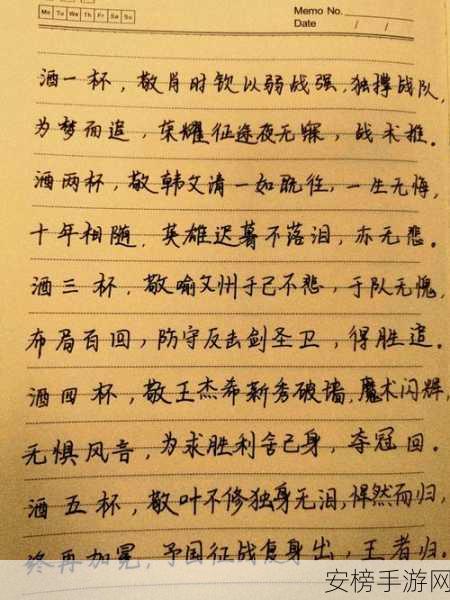 Mo Tu We Th Fr Sa Su
Memo No.
Date / /
酒一杯，敬肖时钦以弱战强，独撑战队，
为梦而追，荣耀征途夜无寐，战术推。
酒两杯，敬韩文清一如既往，一生无悔，
十年相随，英雄迟暮不落泪，亦无悲。
酒三杯，敬喻文州于己不悲，于队无愧，
布局百回，防守反击剑圣卫，得胜追。
酒四杯，敬王杰希新秀破墙，魔术闪辉，
无惧风言，为求胜利舍己身，夺冠回。
酒五杯，敬叶不修独身无泪，悍然而归，
终再加冕，予国征战复身出，王者归。
安榜手游网